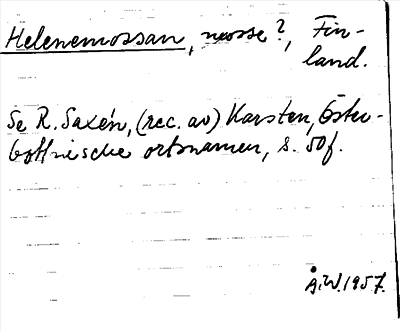 Helenemossan, mosse?, Fin-
land.
Se R. Saxén, (rec. av) Karsten, Öster-
bottnische ortsnamen, s. 50 f.
Å.W. 1957.